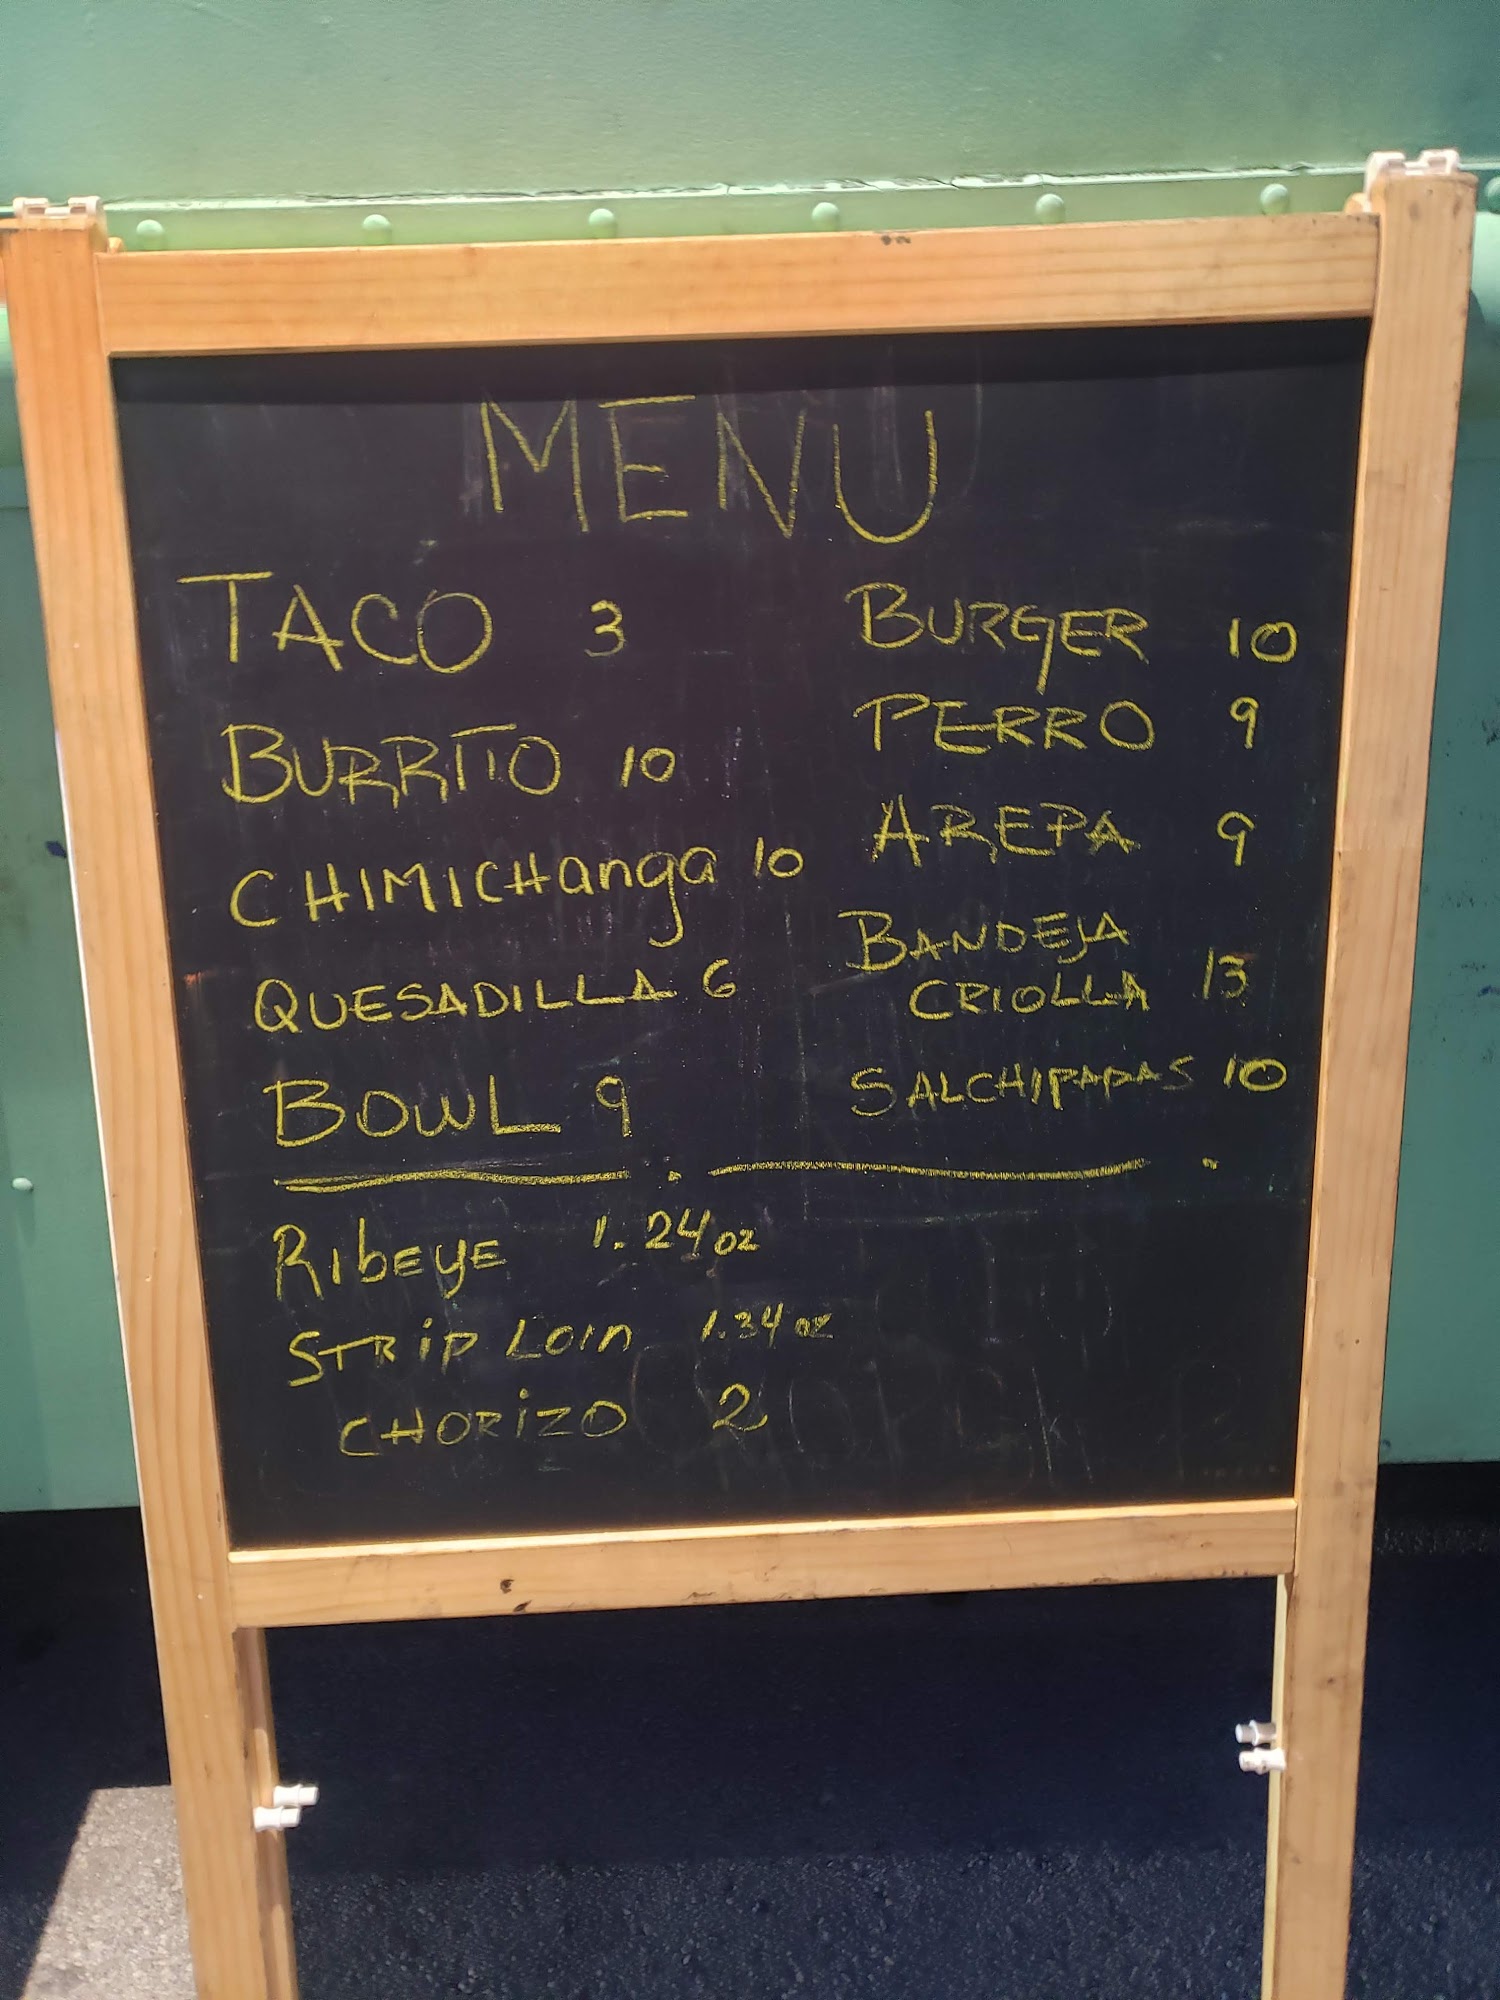 MENU
TACO 3
BURRITO 10
CHIMICHanga 10
QUESADILLA 6
BOWL 9
BURGER 10
PERRO 9
AREPA 9
BANDEJA
CRIOLLA 13
SALCHIPAPAS 10
RibEyE 1.24oz
STRiP LOin 1.34oz
CHORiZO 2